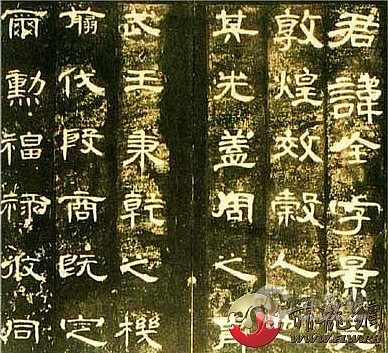 君諱全字景
敦煌效穀人
其先蓋周之胄
武王秉乾之機
翦伐殷商既定
爾勳福祿攸同